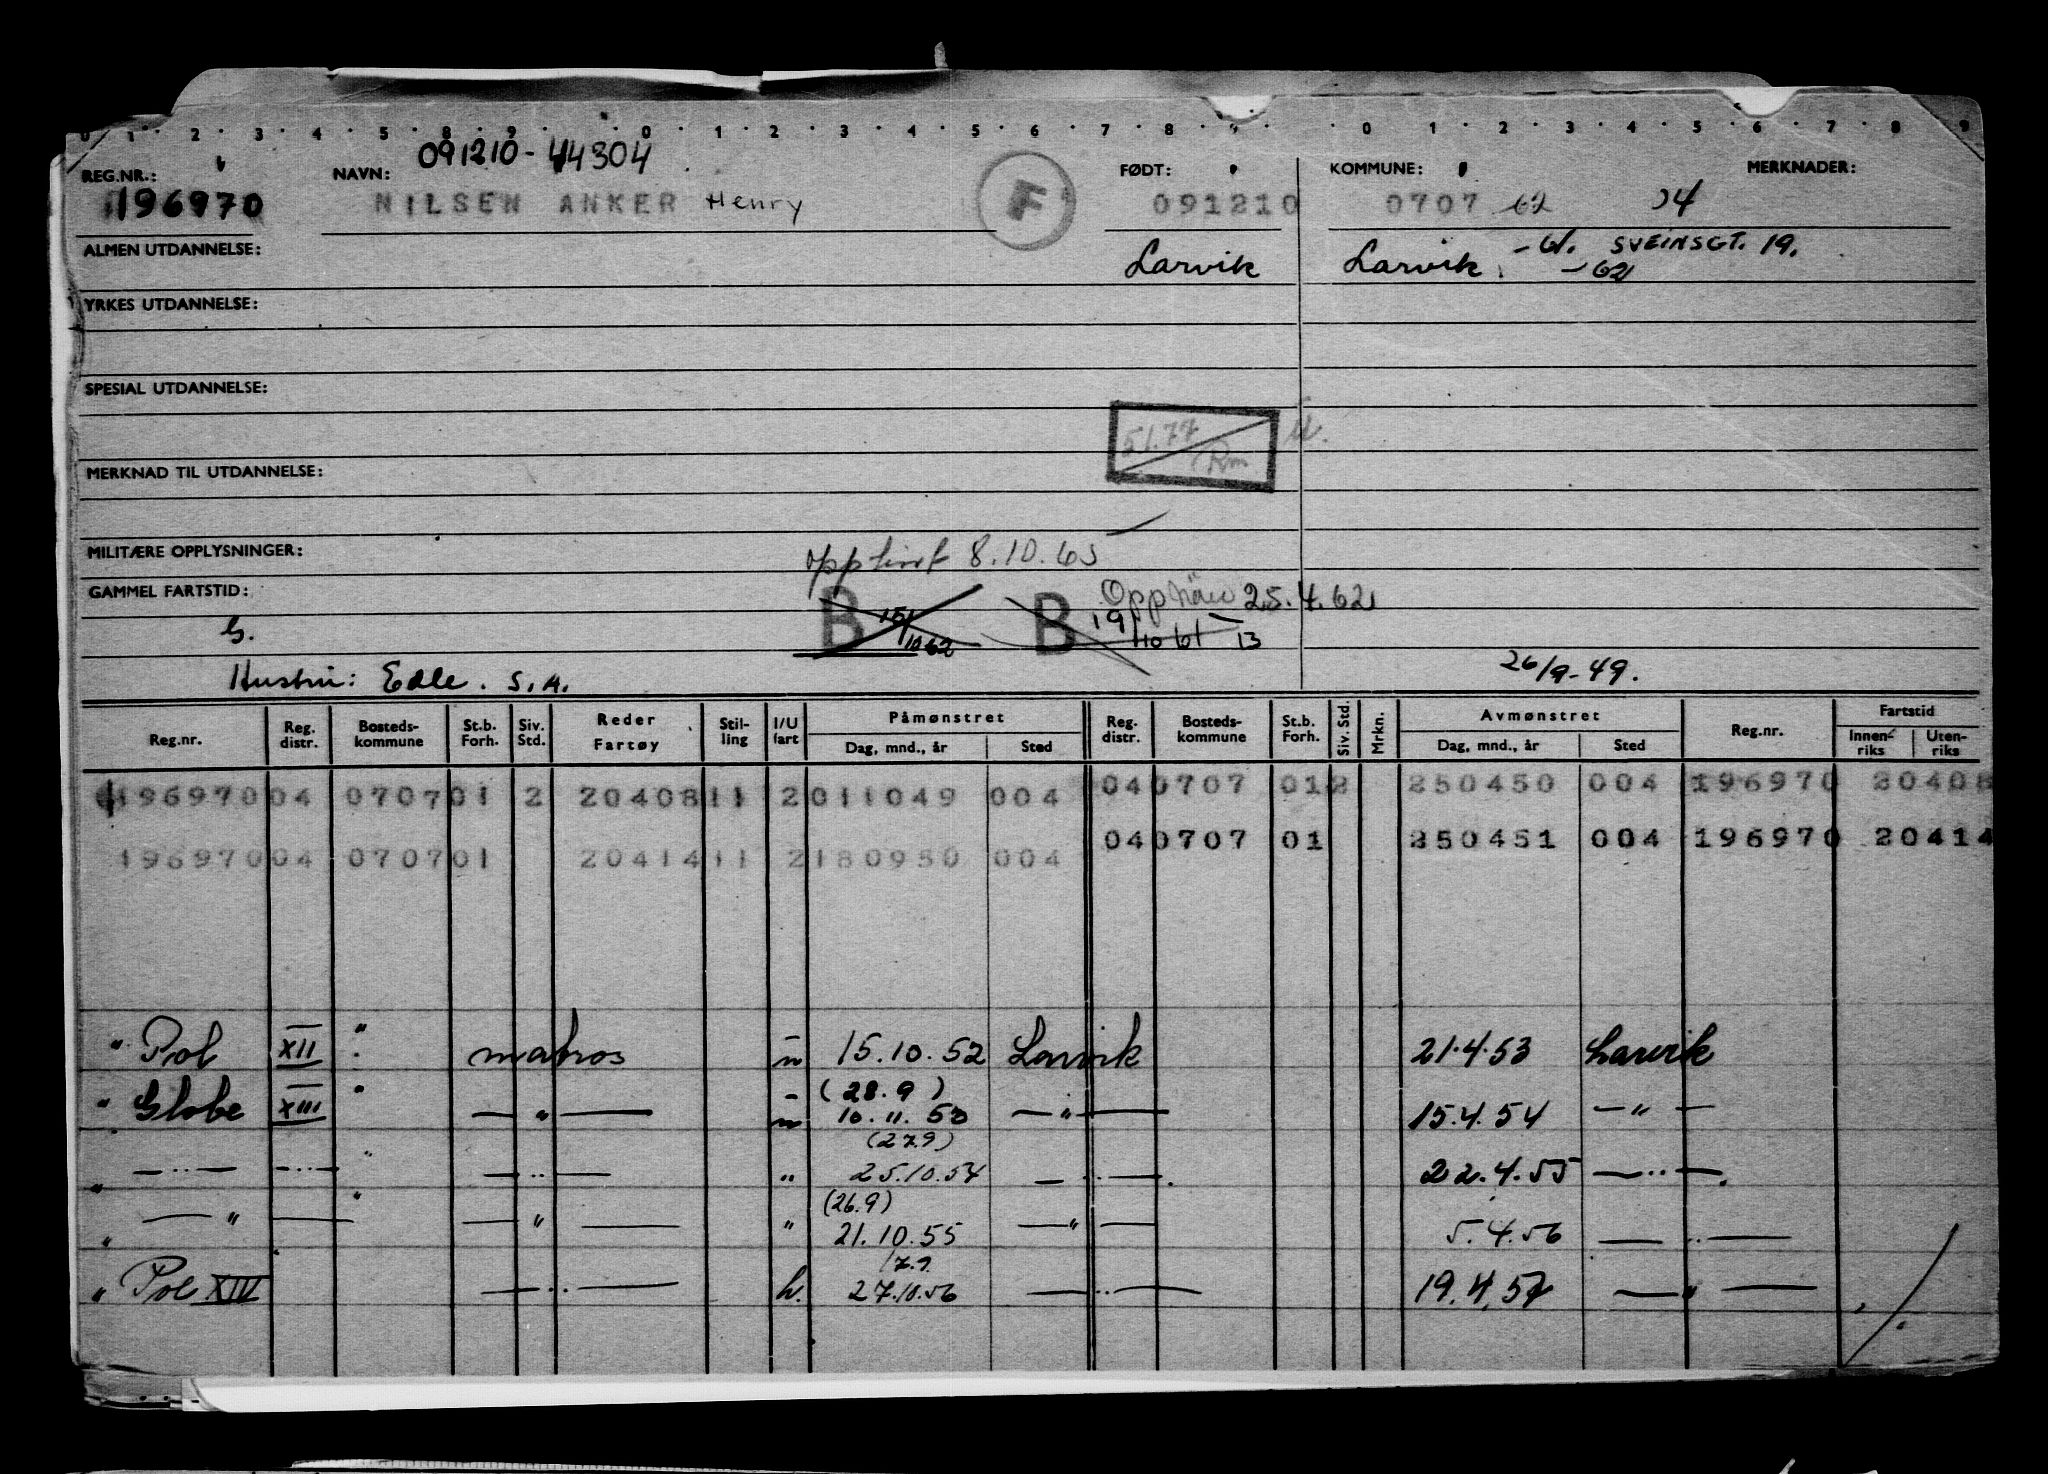 0 1 2 3 4 5 8 9 0 1 2 3 4 5 6 7 8 0 1 2 3 4 5 6 7 8 9
091210-44304
REG.NR.: NAVN: FØDT: KOMMUNE: MERKNADER:
196970 NILSEN ANKER Henry F 091210 0707 62 04
ALMEN UTDANNELSE: Larvik Larvik -61. SVEINSGT. 19.
-62
YRKES UTDANNELSE:
SPESIAL UTDANNELSE:
51.77
Rm
MERKNAD TIL UTDANNELSE:
MILITÆRE OPPLYSNINGER: 8.10.63
GAMMEL FARTSTID: B 15/10 62 B 25.4.62
G. 19/10 61 - 13
Hustru: Edle. S.A. 26/9-49.
Reg.nr. Reg. distr. Bosteds-kommune St.b. Forh. Siv. Std. Reder Fartøy Stil-ling I/U fart Påmønstret Dag, mnd., år Sted Reg. distr. Bosteds-kommune St.b. Forh. Siv. Std. Mrkn. Avmønstret Dag, mnd., år Sted Reg.nr. Fartstid Innen-riks Uten-riks
196970 04 0707 01 2 20408 11 2 011049 004 04 0707 01 2 250450 004 196970 20408
196970 04 0707 01 20414 11 2 180950 004 04 0707 01 250451 004 196970 20414
" Pol XII " matros u 15.10.52 Larvik 21.4.53 Larvik
(28.9)
" Globe XIII " — " — u 10.11.53 — " — 15.4.54 — " —
(27.9)
" — " — — " — " — " — " 25.10.54 — " — 22.4.55 — " —
(26.9)
" — " — " — " — " 21.10.55 — " — 5.4.56 — " —
17.9.
" Pol XIV — " — u. 27.10.56 — " — 19.4.57 — " —